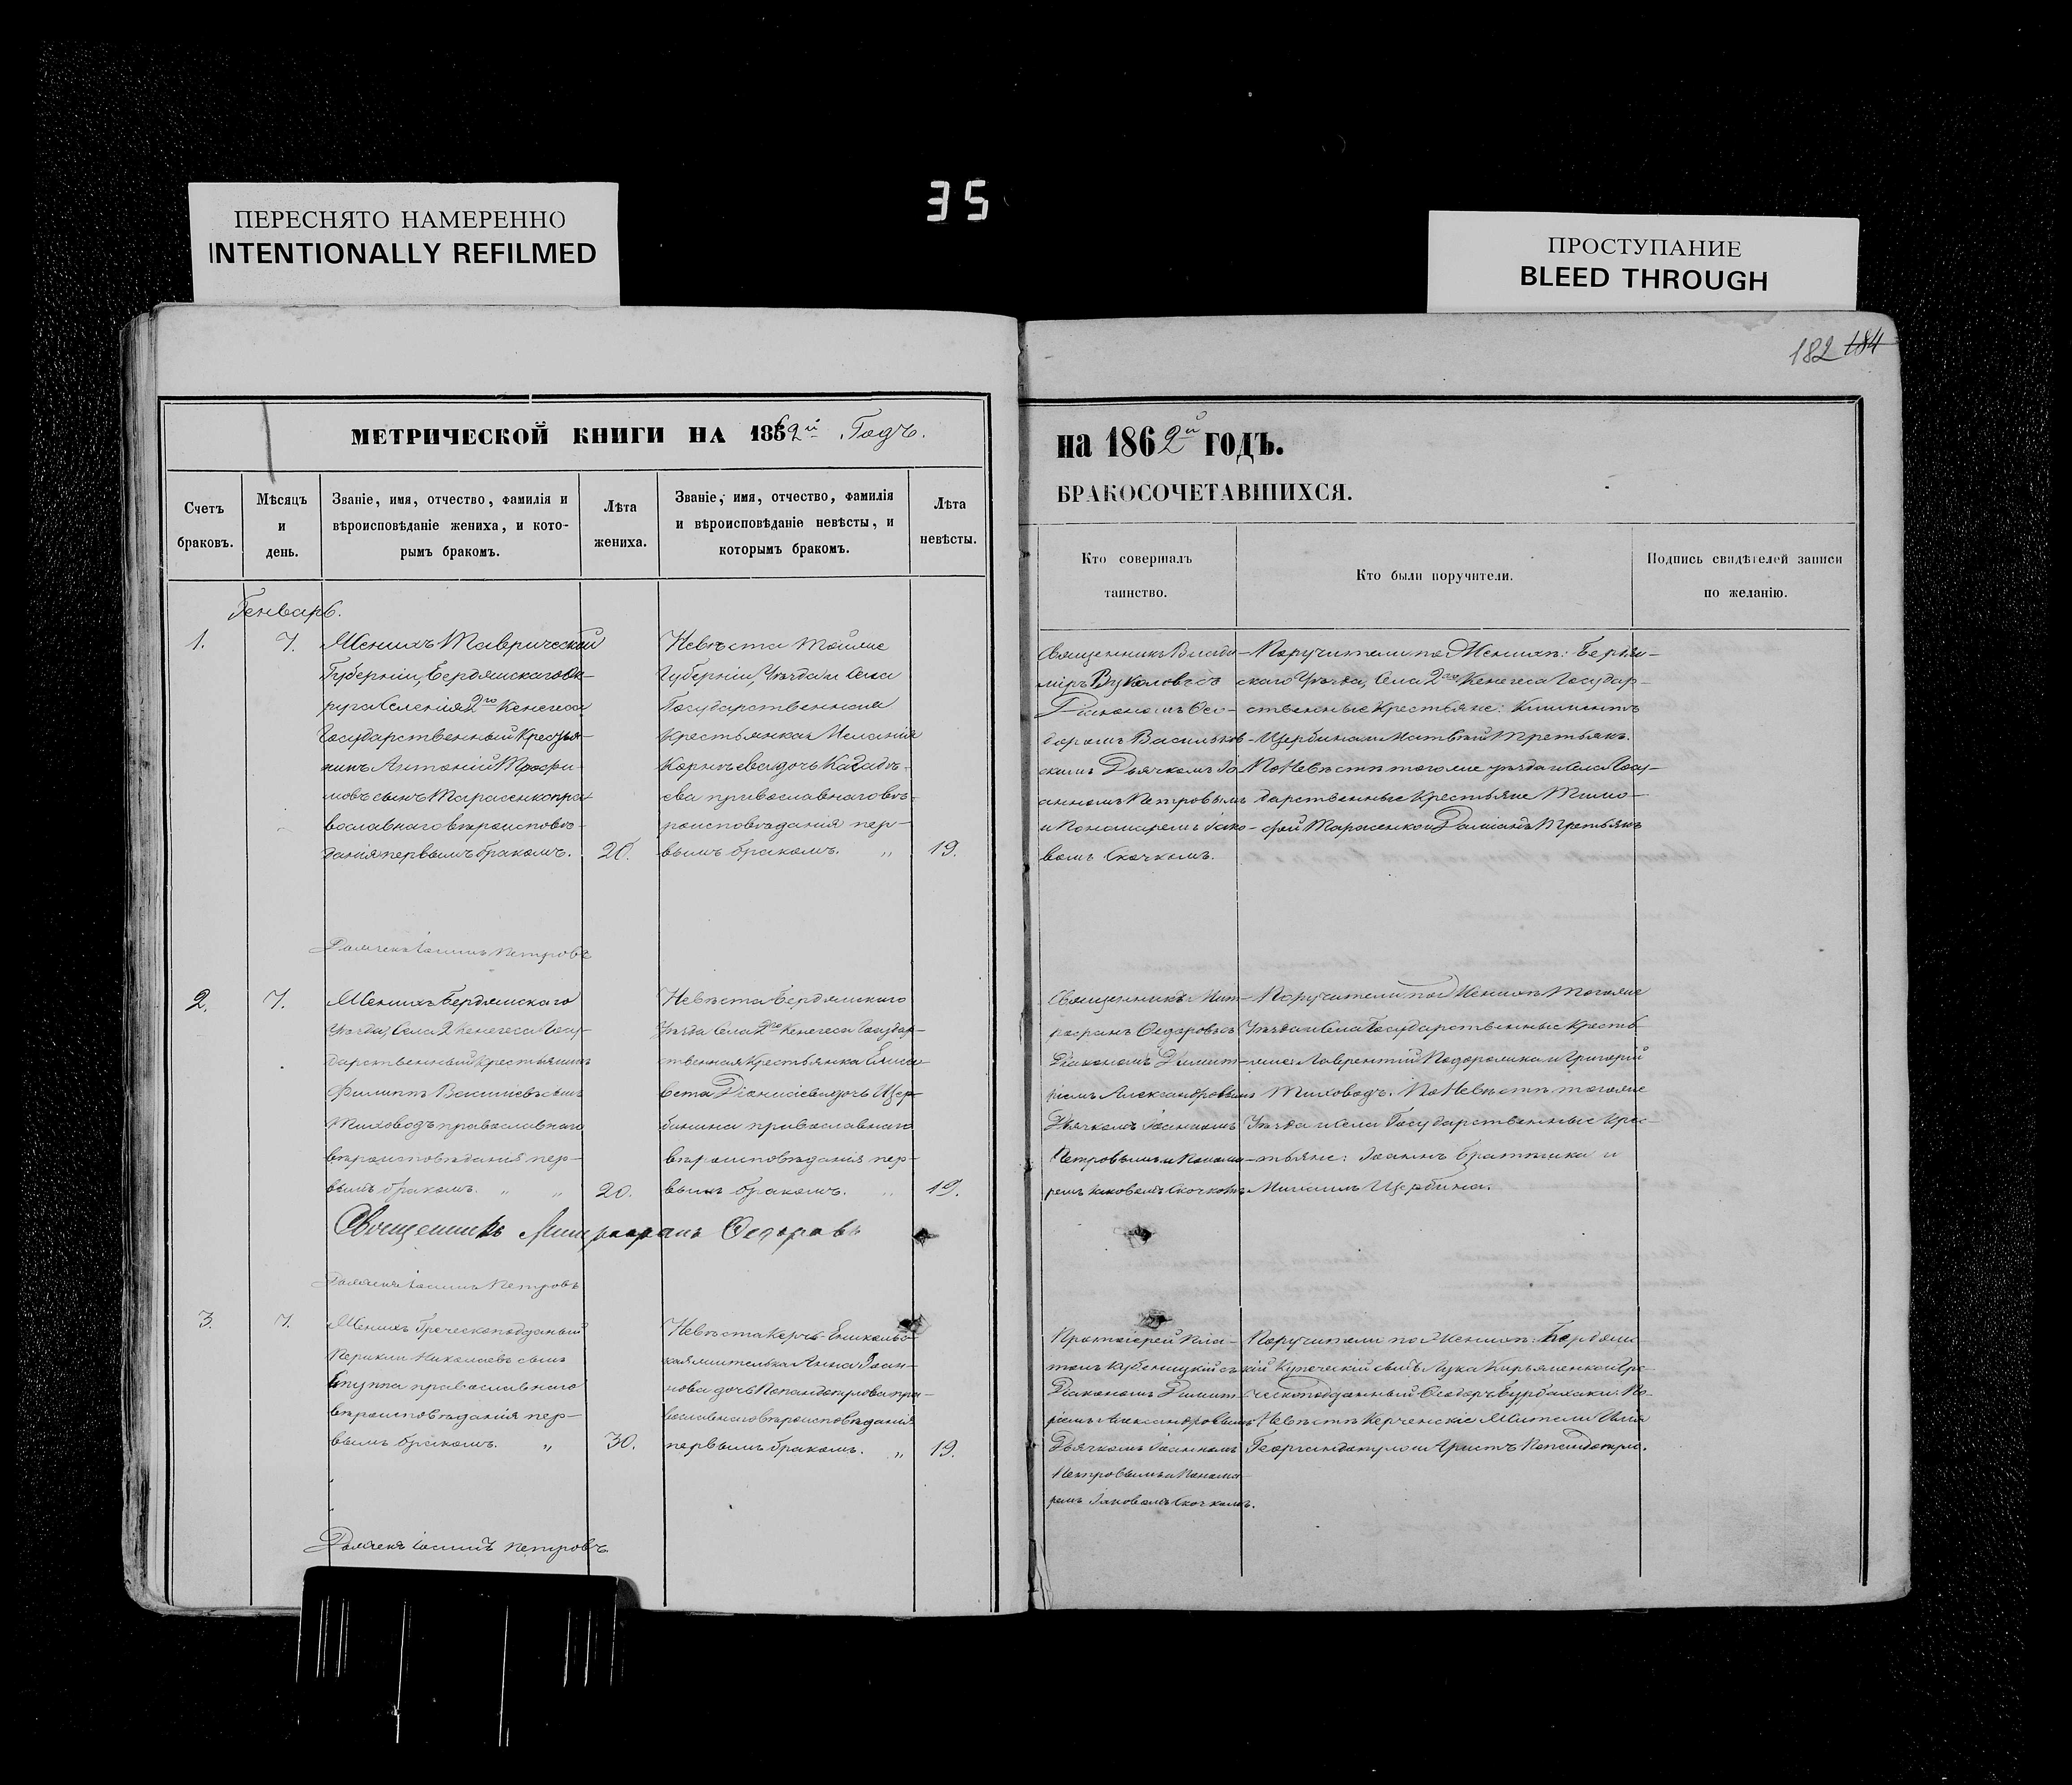 35
ПЕРЕСНЯТО НАМЕРЕННО
INTENTIONALLY REFILMED
ПРОСТУПАНИЕ
BLEED THROUGH
182 184
МЕТРИЧЕСКОЙ КНИГИ НА 1862й Годъ.
Счетъ
браковъ.
Мѣсяцъ
и
день.
Званіе, имя, отчество, фамилія и
вѣроисповѣданіе жениха, и кото-
рымъ бракомъ.
Лѣта
жениха.
Званіе, имя, отчество, фамилія
и вѣроисповѣданіе невѣсты, и
которымъ бракомъ.
Лѣта
невѣсты.
Генварь.
1.
7.
Женихъ Таврической
Губерніи, Бердянскаго Ок-
руга Селенія 2го Кенегеса
Государственный Кресть-
нинъ Антоній Трофи-
мовъ сынъ Тарасенко пра-
вославнаго вѣроисповѣ-
данія первымъ бракомъ.
20.
Невѣста тойже
Губерніи, Уѣзда и Села
Государственная
Крестьянка Меланія
Корнѣева дочь
православнаго вѣ-
роисповѣданія пер-
вымъ бракомъ. „
19.
Іоаннъ Петровъ
2.
7.
Женихъ Бердянскаго
Уѣзда, Села 2 Кенегеса Госу-
дарственный Крестьянинъ
Филиппъ Васильевъ сынъ
Тиховодъ православнаго
вѣроисповѣданія пер-
вымъ бракомъ. „ „
20.
Невѣста Бердянскаго
Уѣзда Села 2го Кенегеса Государ-
ственная Крестьянка Елиса-
вета Діонисіева дочь Щер-
бинина православнаго
вѣроисповѣданія пер-
вымъ бракомъ. „
19.
Священникъ Митрофанъ Ѳедоровъ
Іоаннъ Петровъ
3.
7.
Женихъ Греческоподданый
Периклъ Николаевъ сынъ
православнаго
вѣроисповѣданія пер-
вымъ бракомъ. „
30.
Невѣста Керчь-Еникольс-
кая жителька Анна Іоан-
нова дочь Попандопулова пра-
вославнаго вѣроисповѣданія
первымъ бракомъ. „
19.
Іоаннъ Петровъ
на 1862й ГОДЪ.
БРАКОСОЧЕТАВШИХСЯ.
Кто совершалъ
таинство.
Кто были поручители.
Подпись свидѣтелей записи
по желанію.
Священникъ Влади-
міръ Вуколовъ съ
Діакономъ Ѳео-
доромъ Васильков-
скимъ Дьячкомъ Іо-
анномъ Петровымъ
и Пономаремъ Іако-
вомъ Скочкомъ.
Поручители по Женихѣ: Бердян-
скаго Уѣзда, Села 2го Кенегеса Государ-
ственные Крестьяне: Климентъ
Щербина и Матвѣй Третьякъ.
По Невѣстѣ тогоже уѣзда и Села Госу-
дарственные Крестьяне Тимо-
фей Тарасенко и Даміанъ Третьякъ
Священникъ Мит-
рофанъ Ѳедоровъ съ
Діакономъ Димит-
ріемъ Александровымъ
Дьячкомъ Іоанномъ
Петровымъ и Понома-
ремъ Іаковомъ Скочкомъ
Поручители по Женихѣ тогоже
Уѣзда и Села Государственные Кресть-
яне: Лаврентій и Григорій
Тиховодъ. По Невѣстѣ тогоже
Уѣзда и Села Государственные Крес-
тьяне: Іоаннъ Братышка и
Михаилъ Щербина.
Протоіерей Пла-
тонъ Кубеницкій съ
Діакономъ Димит-
ріемъ Александровымъ
Дьячкомъ Іоанномъ
Петровымъ и Понома-
ремъ Іаковомъ Скочкомъ.
Поручители по Женихѣ: Бердянс-
кій Купеческій сынъ Лука Кирьяненко и Гре-
ческоподданный Ѳеодоръ. По
Невѣстѣ Керченскіе Жители Илія
и Христъ Попандопуло.